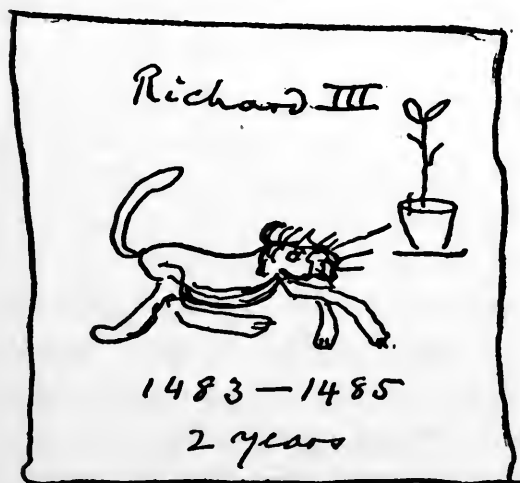 Richard III
1483—1485
2 years